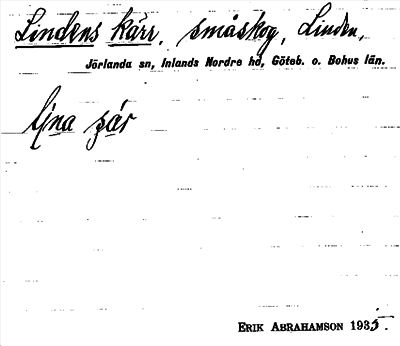 Lindens kärr, småskog, Linden,
Jörlanda sn, Inlands Nordre hd, Göteb. o. Bohus län.
ERIK ABRAHAMSON 1935.